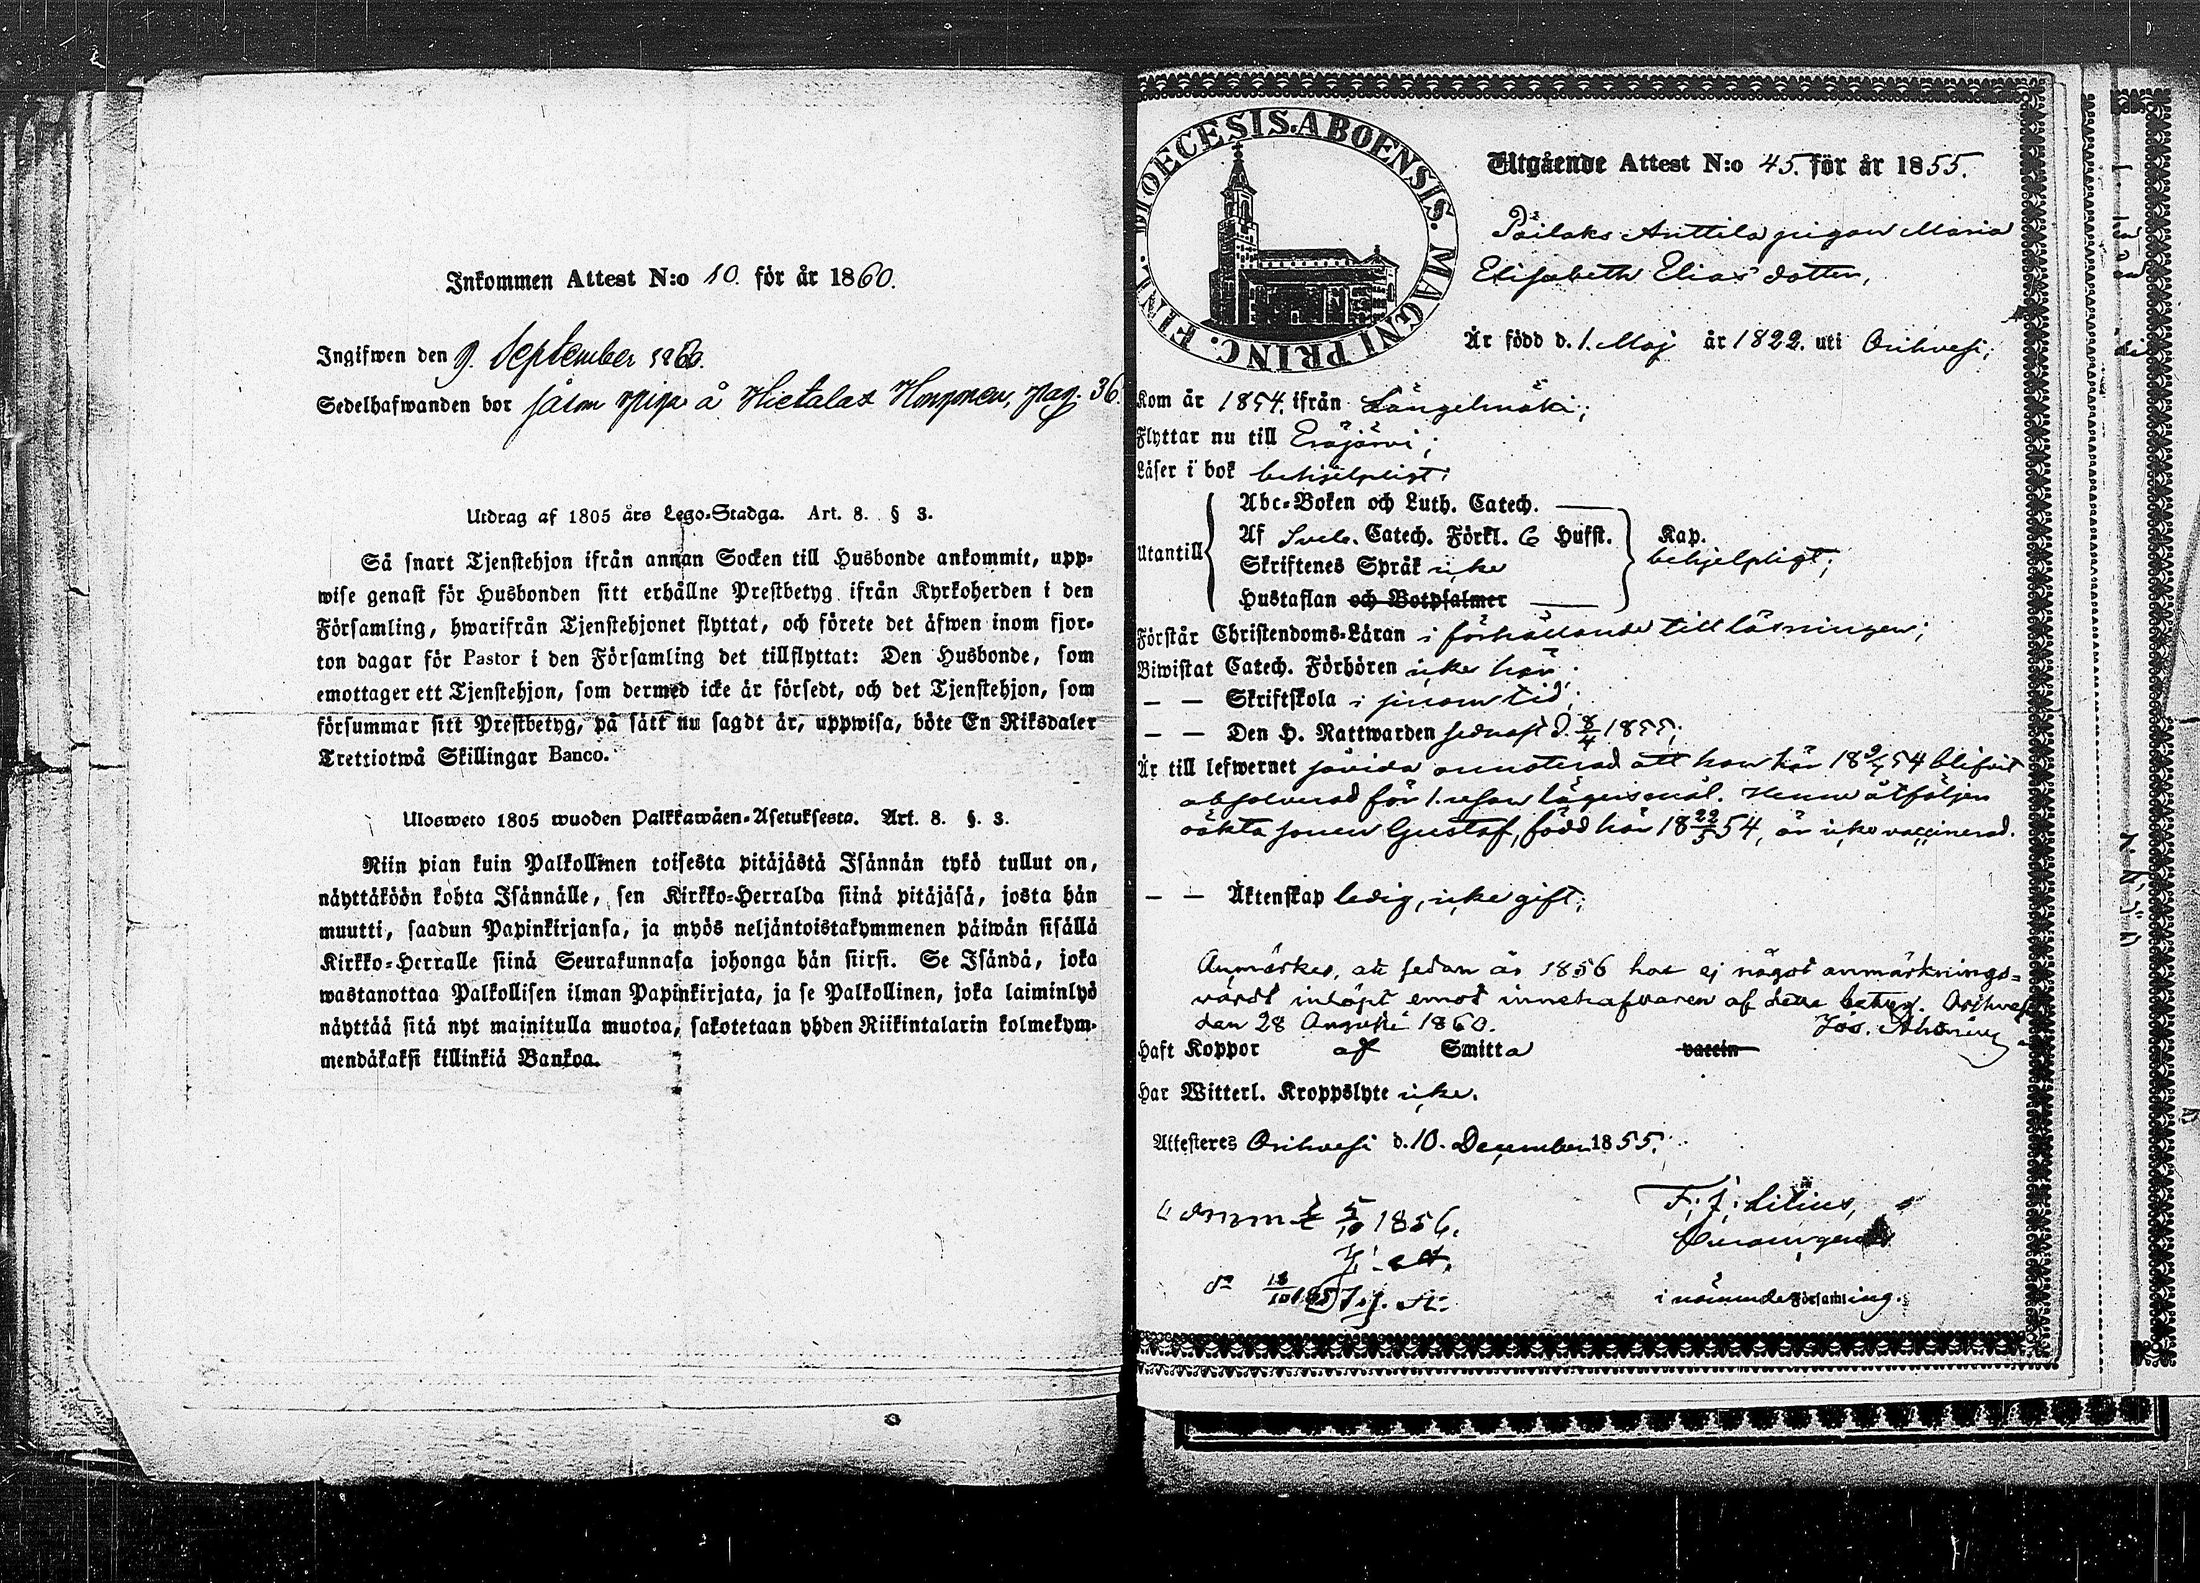 Inkommen Attest N:o 10. för år 1860.
Ingifwen den 9. September 1860.
Sedelhafwanden bor såsom piga å Hietalax Hopponen, pag. 36.
Utdrag af 1805 års Lego-Stadga. Art. 8. § 3.
Så snart Tjenstehjon ifrån annan Socken till Husbonde ankommit, upp-
wise genast för Husbonden sitt erhållne Prestbetyg ifrån Kyrkoherden i den
Församling, hwarifrån Tjenstehjonet flyttat, och förete det äfwen inom fjor-
ton dagar för Pastor i den Församling det tillflyttat: Den Husbonde, som
emottager ett Tjenstehjon, som dermed icke är försedt, och det Tjenstehjon, som
försummar sitt Prestbetyg, på sätt nu sagdt är, uppwisa, böte En Riksdaler
Trettiotwå Skillingar Banco.
Ulosweto 1805 wuoden Palkkawäen-Asetuksesta. Art. 8. §. 3.
Niin pian kuin Palkollinen toisesta pitäjästä Isännän tykö tullut on,
näyttäköön kohta Isännälle, sen Kirkko-Herralda siinä pitäjäsä, josta hän
muutti, saadun Papinkirjansa, ja myös neljäntoistakymmenen päiwän sisällä
Kirkko-Herralle siinä Seurakunnasa johonga hän siirsi. Se Isändä, joka
wastanottaa Palkollisen ilman Papinkirjata, ja se Palkollinen, joka laiminlyö
näyttää sitä nyt mainitulla muotoa, sakotetaan yhden Riikintalarin kolmekym-
mendäkaksi killinkiä Bankoa.
DIOECESIS.ABOENSIS. MAGNI PRINC. FINL.
Utgående Attest N:o 45. för år 1855.
Påilaks Anttila pigan Maria
Elisabeth Elias dotter,
Är född d. 1. Maj år 1822. uti Orihvesi;
Kom år 1854. ifrån Längelmäki;
Flyttar nu till Eräjärvi;
Läser i bok behjelpligt;
Utantill
Abc-Boken och Luth. Catech. —
Af Sveb. Catech. Förkl. 6 Hufst. Kap.
Skriftenes Språk icke behjelpligt;
Hustaflan och Botpsalmer —
Förstår Christendoms-Läran i förhållande till läsningen;
Biwistat Catech. Förhören icke här;
— — Skriftskola i sinom tid;
— — Den H. Nattwarden sednast d. 8/4 1855;
Är till lefwernet såvida annoterad att hon här 18 2/7 54 blifvit
absolverad för 1. resan lägersmål. Henne åtföljer
oäkta sonen Gustaf, född här 18 22/5 54, är icke vaccinerad.
— — Äktenskap ledig, icke gift;
Anmärkes, att sedan år 1856 har ej något anmärknings-
värdt inlöpt emot innehafvaren af detta betyg. Orihvesi
den 28 Augusti 1860. Jos. Ahonius
Haft Koppor af Smitta vaccin
Har Witterl. Kroppslyte icke.
Attesteres Orihvesi d. 10. December 1855.
5/10 1856.
F. J. Lilius,
do
i nämnde Församling.